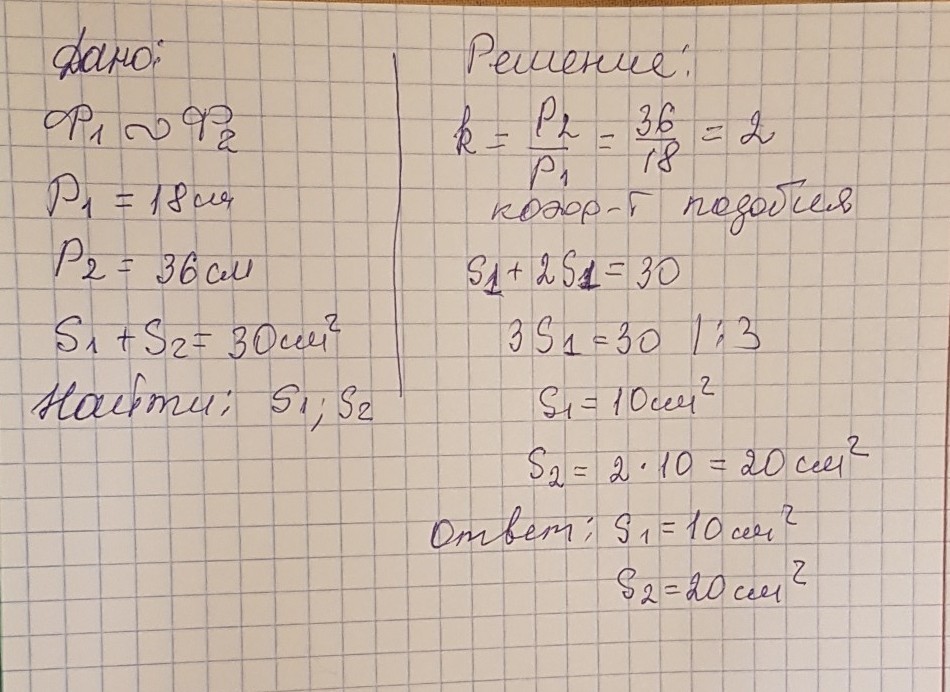 Дано:
Ф1 ~ Ф2
P1 = 18 см
P2 = 36 см
S1 + S2 = 30 см²
Найти: S1; S2
Решение:
k = P2/P1 = 36/18 = 2
подобия
S1 + 2S1 = 30
3S1 = 30 | : 3
S1 = 10 см²
S2 = 2 · 10 = 20 см²
Ответ: S1 = 10 см²
S2 = 20 см²